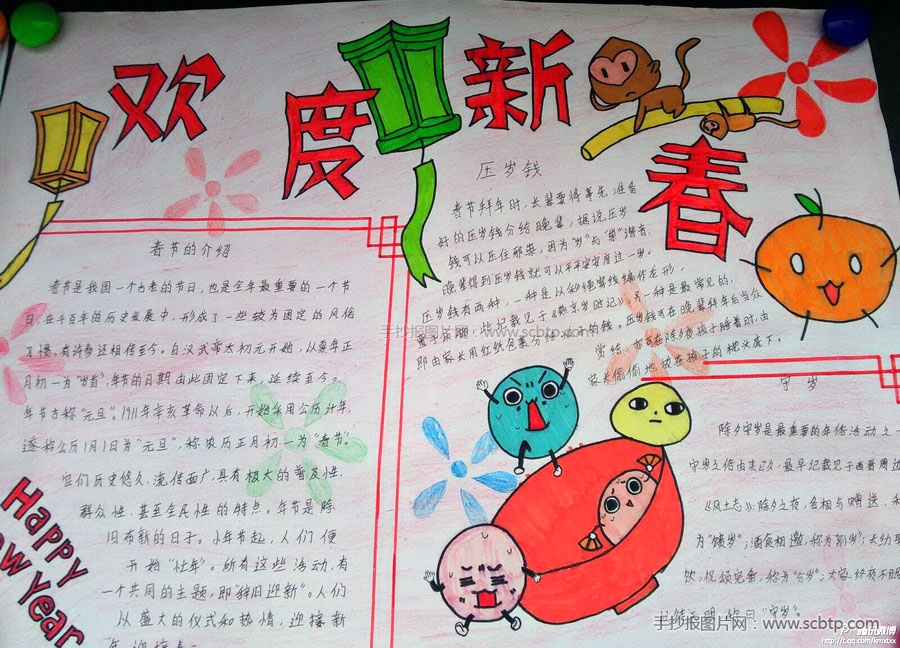 欢度新春
压岁钱
春节拜年时,长辈要将事先准备
好的压岁钱分给晚辈,据说压岁
钱可以压住邪祟,因为“岁”与“祟”谐音,
晚辈得到压岁钱就可以平平安安度过一岁。
压岁钱有两种,一种是以彩绳穿线编作龙形,
置于床脚,此记载见于《燕京岁时记》;另一种是最常见的,
即由家长用红纸包裹分给孩子的钱。压岁钱可在晚辈拜年后当众
赏给,亦可在除夕夜孩子睡着时,由
家长偷偷地放在孩子的枕头底下。
春节的介绍
春节是我国一个古老的节日,也是全年最重要的一个节
日,在千百年的历史发展中,形成了一些较为固定的风俗
习惯,有许多还相传至今。自汉武帝太初元开始,以夏年正
月初一为“岁首”,年节的日期由此固定下来,延续至今。
年节古称“元旦”。1911年辛亥革命以后,开始采用公历计年,
遂称公历1月1日为“元旦”,称农历正月初一为“春节”。
它们历史悠久、流传面广,具有极大的普及性、
群众性、甚至全民性的特点。年节是除
旧布新的日子。小年节起,人们便
开始“忙年”。所有这些活动,有
一个共同的主题,即“辞旧迎新”。人们
以盛大的仪式和热情,迎接新
年,迎接春
守岁
除夕守岁是最重要的年俗活动之一
守岁之俗由来已久,最早记载见于西晋周处
《风土志》:除夕之夜,各相与赠送,称
为“馈岁”;酒食相邀,称为“别岁”;长幼聚
饮,祝颂完备,称为“分岁”;大家终夜不眠
以待天明,称曰“守岁”。
Happy
New Year
手抄报图片网:www.scbtp.com
手抄报图片网:www.scbtp.com
腾讯微博
http://t.qq.com/kmxtxx